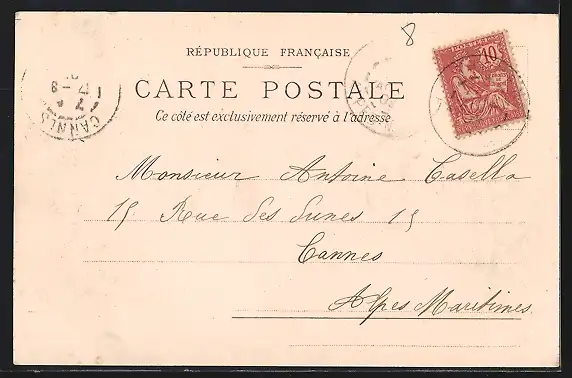 8
RÉPUBLIQUE FRANÇAISE
CARTE POSTALE
Ce côté est exclusivement réservé à l'adresse
POSTES
10
CANNES
Monsieur Antoine Casella
15 Rue des Dunes 15
Cannes
Alpes Maritimes